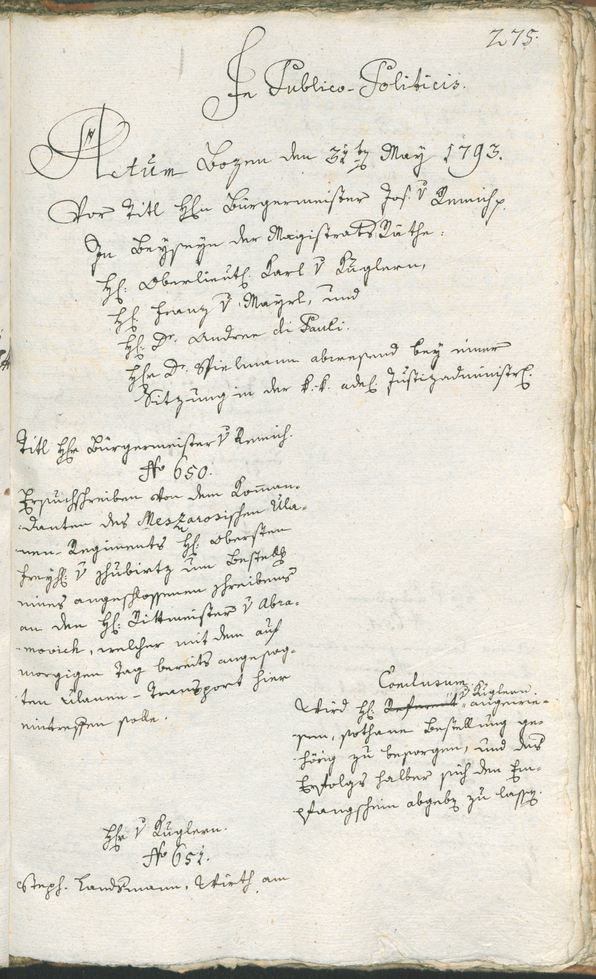 275.
In Publico-Politicis.
Actum Bozen den 31ten May 1793.
Vor Titl Hhn Bürgermeister Jos. v Remich
In Beyseyn der Magistrats Räthe:
Hh: Oberlieut: Karl v Kuglern,
Hh: Franz v Mayrl, und
Hh: Dr. Andree di Pauli.
Hhr Dr. Spielmann abwesend bey einer
Sitzung in der k.k. adel. Justizadministr.
Titl Hhr Bürgermeister v Remich.
No 650.
Ersuchschreiben von dem Koman-
danten des Meszarosischen Ula-
nen-Regiments Hh: Obersten
Freyh: v Schubirtz um Bestellg
eines angeschlossenen Schreibens
an den Hh: Rittmeister v Abra-
movich, welcher mit dem auf
morgigen Tag bereits angesag-
ten Ulanen-Transport hier
eintreffen solle.
Conclusum.
Wird Hh: Referent v Kuglern angewie-
sen, sothane Bestellung ge-
hörig zu besorgen, und des
Erfolgs halber sich den Em-
pfangschein abgebn zu lassn.
Hhr v Kuglern.
No 651.
Steph. Landsmann, Wirth am